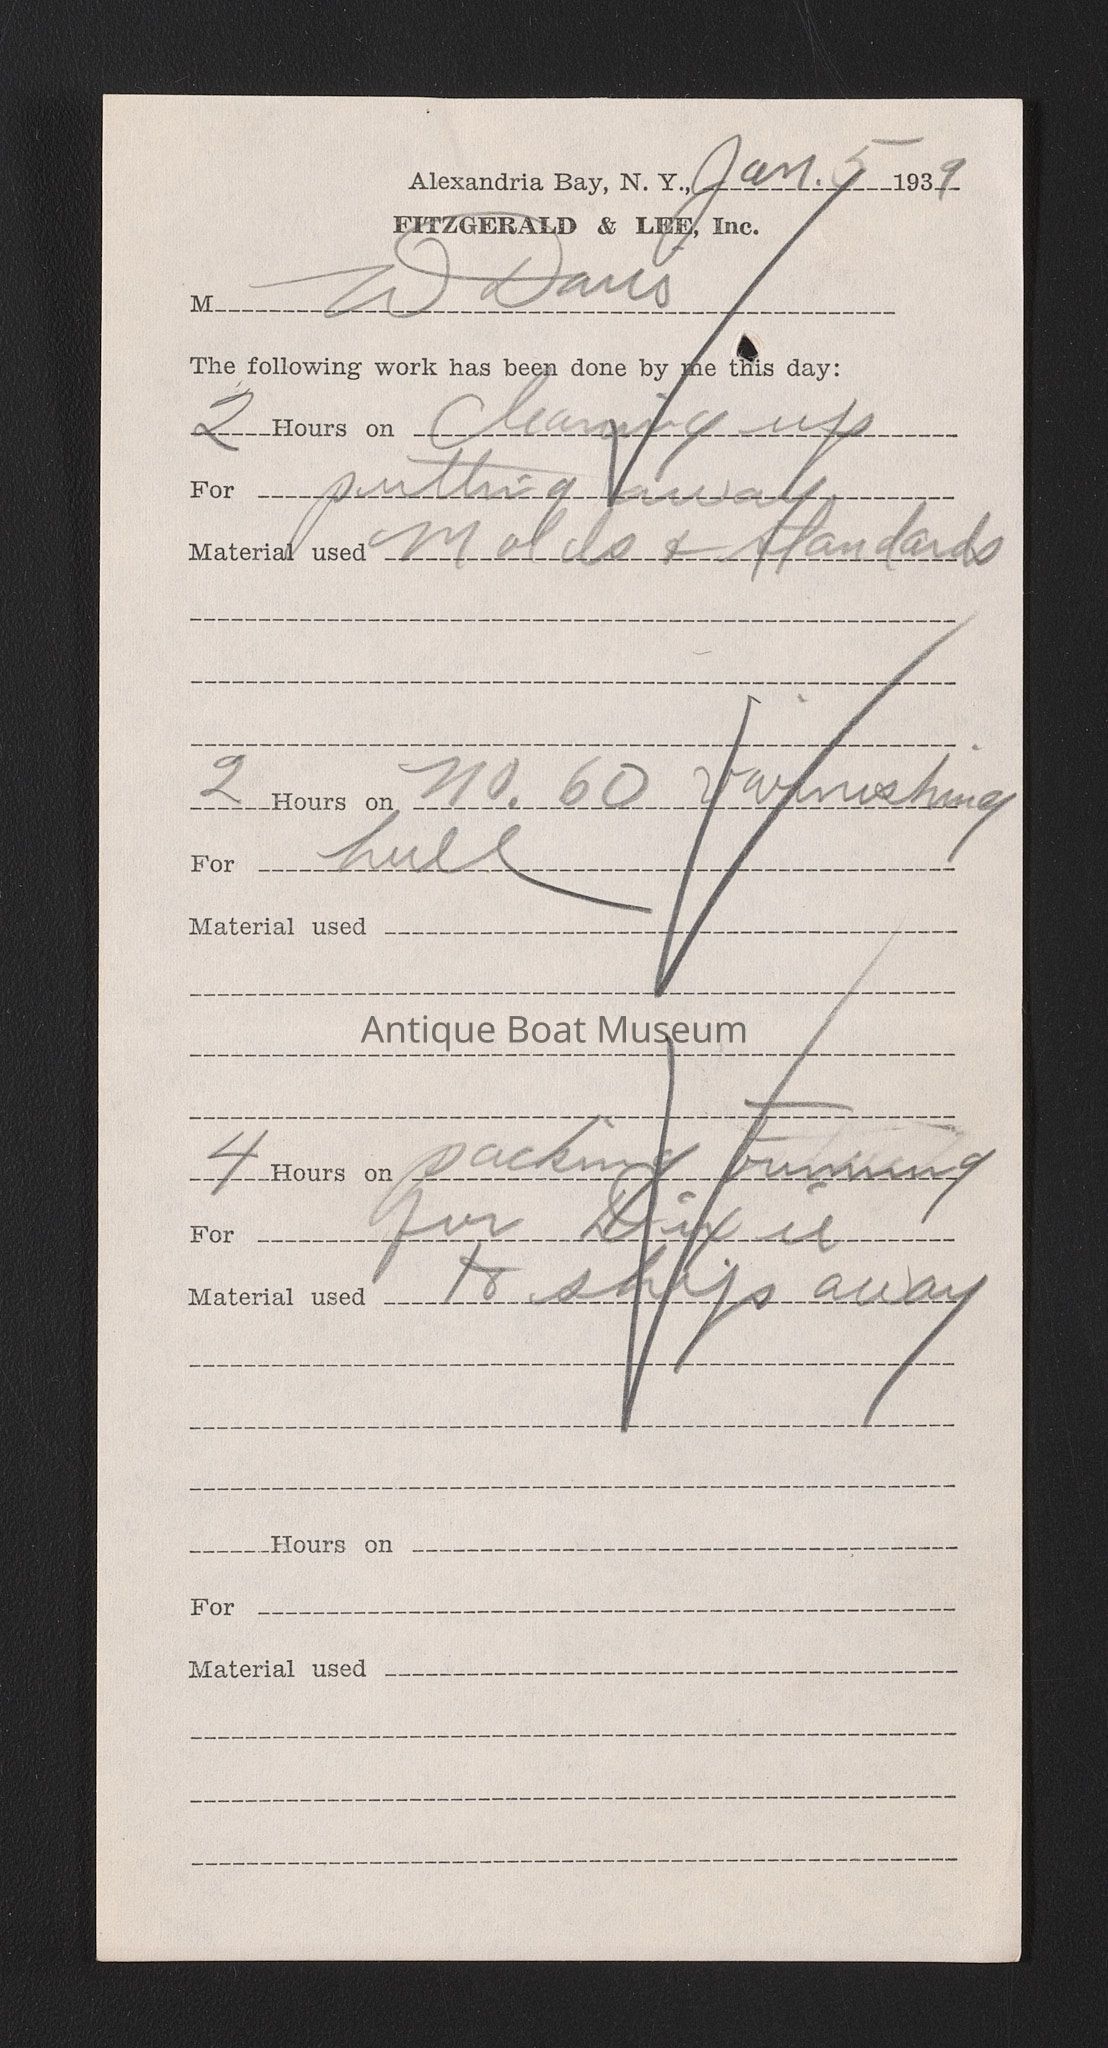 Alexandria Bay, N. Y., Jan. 5 1939
FITZGERALD & LEE, Inc.
M W Davis
The following work has been done by me this day:
2 Hours on Cleaning up
For putting away
Material used Molds & Standards
2 Hours on No. 60 varnishing
For hull
Material used
Antique Boat Museum
4 Hours on packing
For for Dixie
Material used to ships away
Hours on
For
Material used